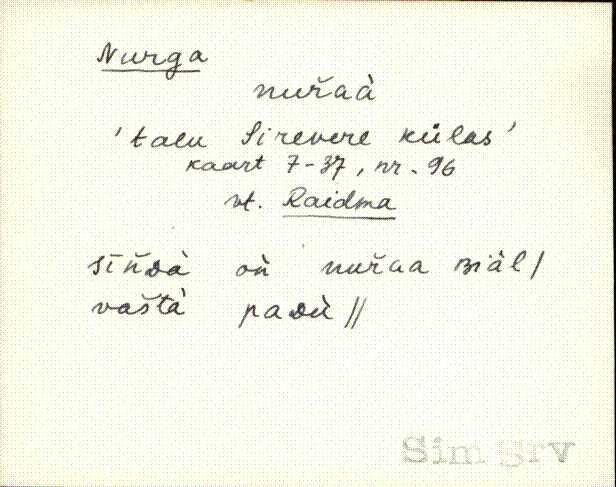 Nurga
nuřaà
'talu Sirevere külas'
kaart 7-37, nr. 96
vt. Raidma
sīňᴅà oǹ nuřaa ʙiäl/
vaštà paᴅù //
Sim Srv